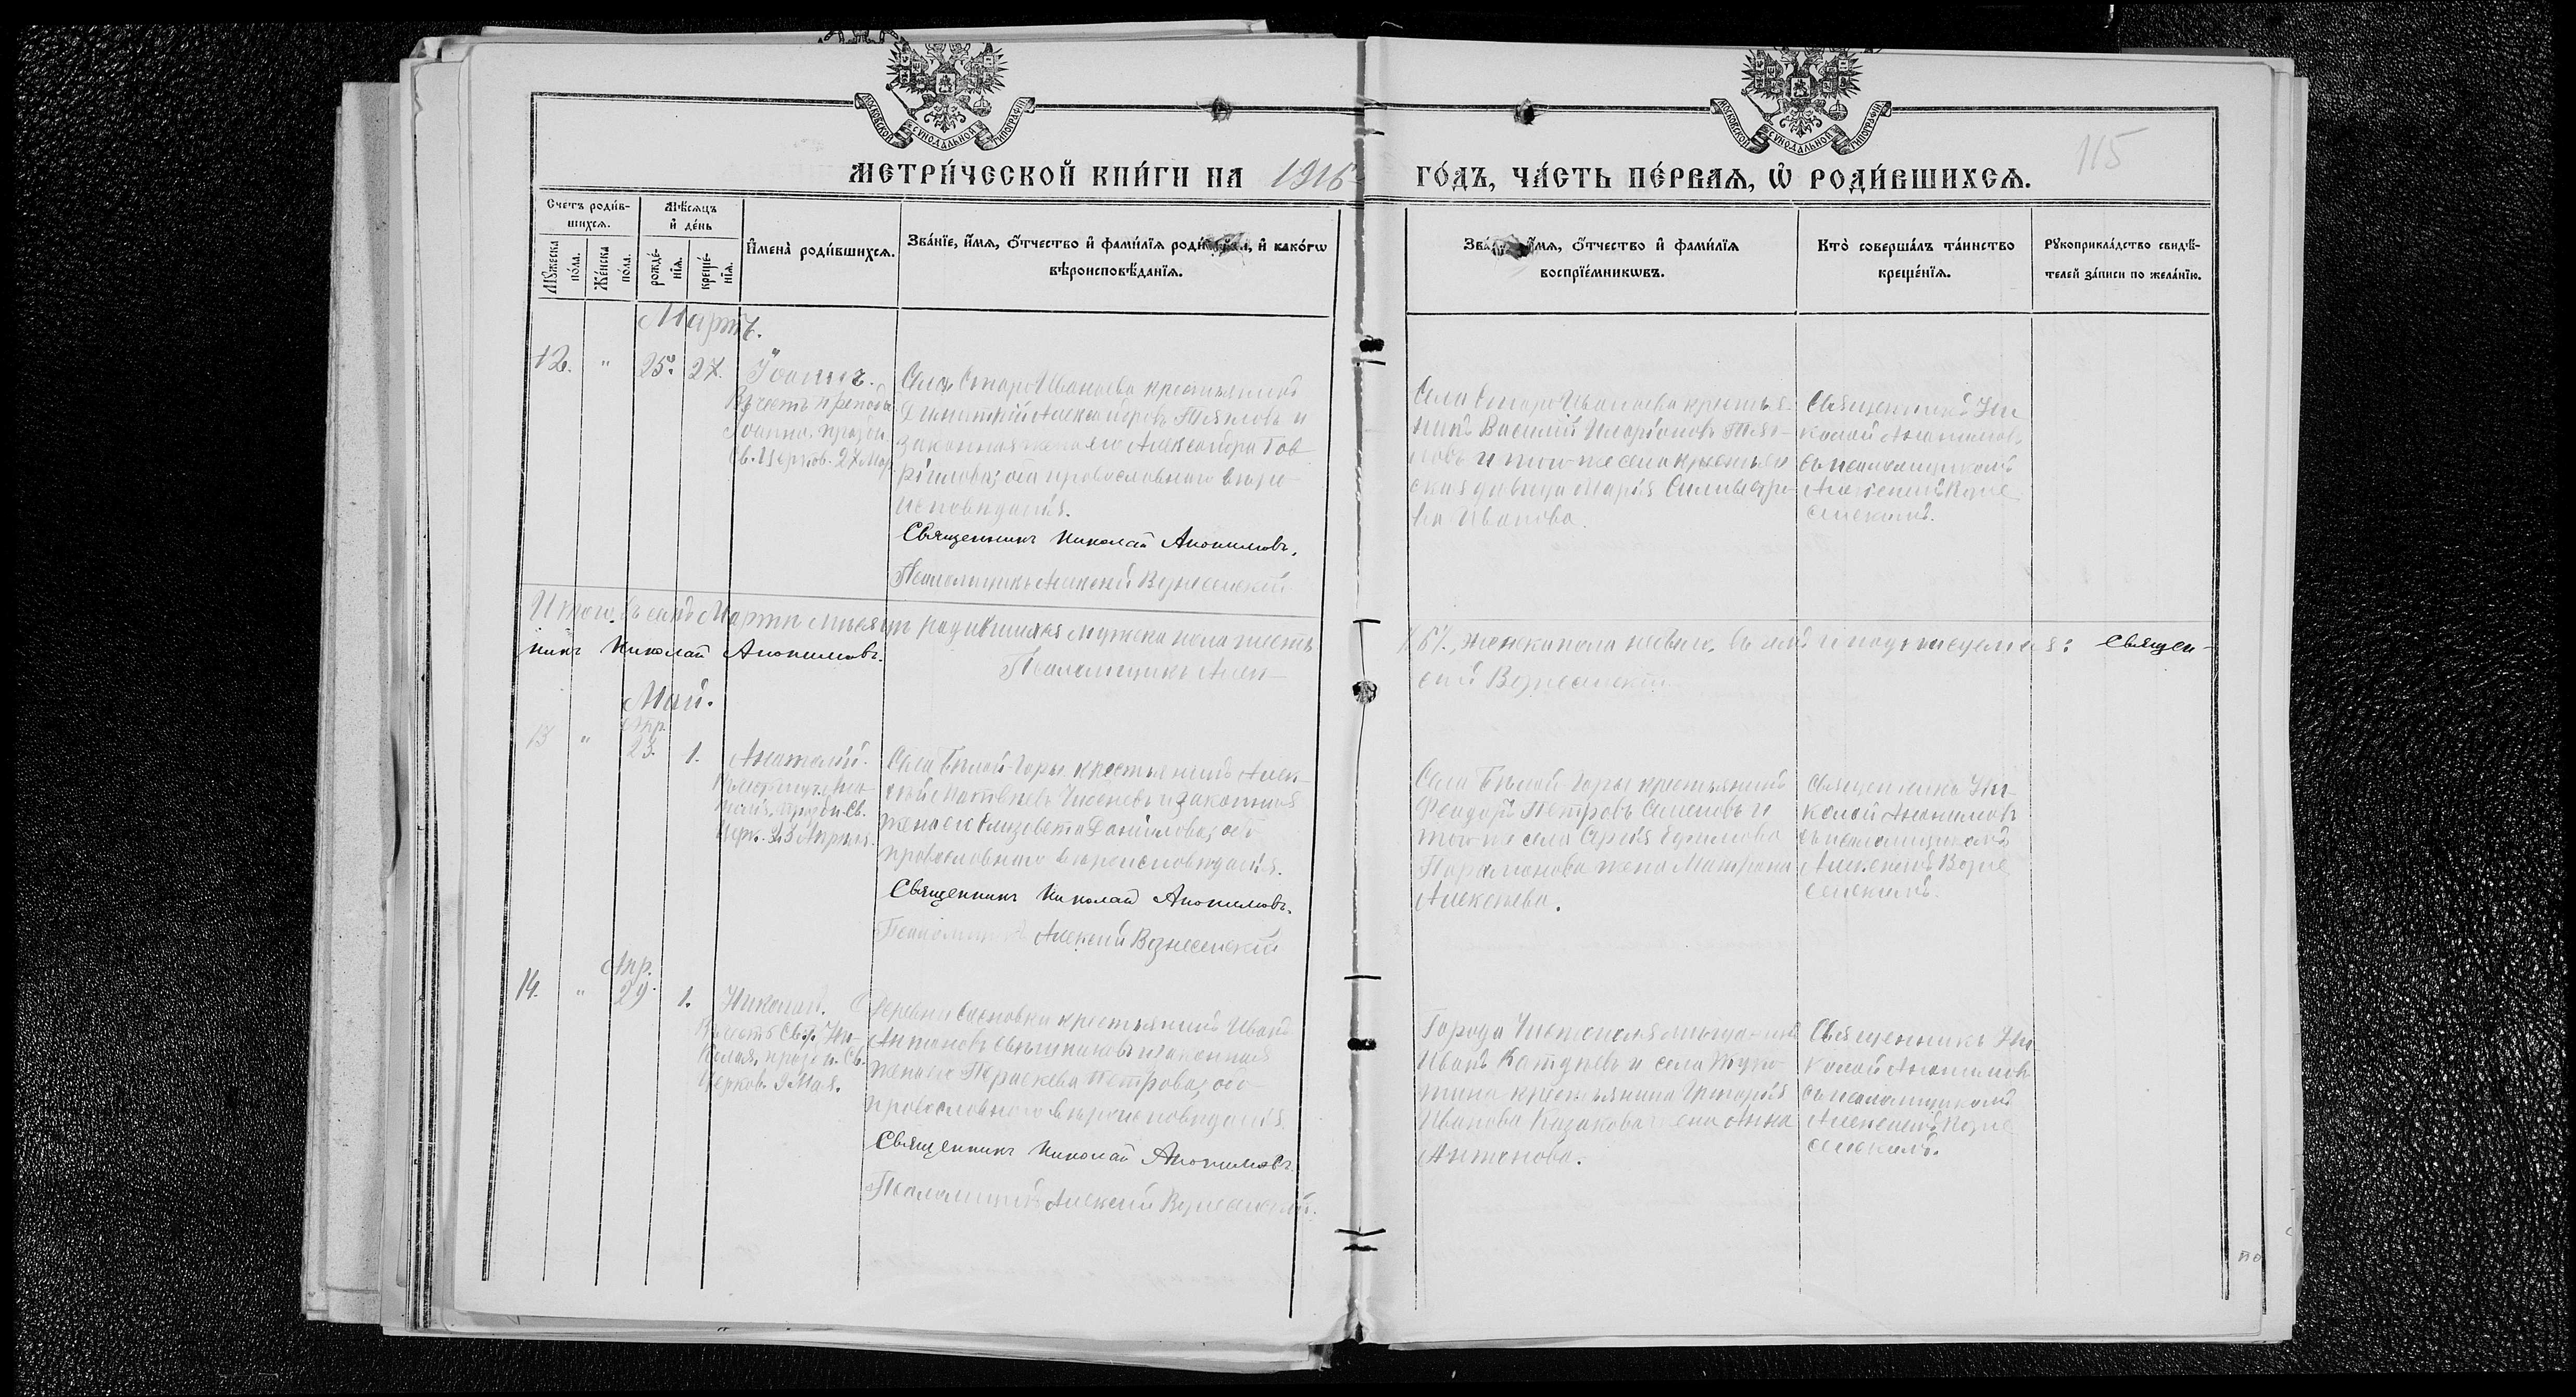 МОСКОВСКОЙ СѴНОДАЛЬНОЙ ТИПОГРАФІИ
МОСКОВСКОЙ СѴНОДАЛЬНОЙ ТИПОГРАФІИ
115
МЕТРИ́ЧЕСКОЙ КНИ́ГИ НА 1916
ГО́ДЪ, ЧА́СТЬ ПЕ́РВАЯ, Ѡ҆ РОДИ́ВШИХСЯ.
Счетъ роди́в-
шихся.
Мѣ́сяцъ
и҆ де́нь
Мꙋ́жеска
по́ла.
Же́нска
по́ла.
рожде́-
нїя.
креще́-
нїя.
И҆мена̀ роди́вшихся.
Зва́нїе, и҆́мя, ѻ҆́тчество и҆ фами́лїя и҆ како́гѡ
вѣроисповѣ́данїя.
и҆́мя, ѻ҆́тчество и҆ фами́лїя
воспрїе́мникѡвъ.
Кто̀ соверша́лъ та́инство
креще́нїя.
Рꙋкоприкла́дство свидѣ́-
телей за́писи по жела́нїю.
Мартъ.
12. " 25. 27. Іоаннъ.
Въ честь препод.
Іоанна, праздн.
Св. Церков. 27 Мар.
Села Старо Иванаева крестьянинъ
Димитрій Александровъ и
законная жена его Александра Гав-
ріилова; оба православнаго вѣро-
исповѣданія.
Священникъ Николай Анонимовъ.
Псаломщикъ Алексій Вознесенскій
Села Старо Иванаева крестья-
нинъ Василій Иларіоновъ
и того же села крестьян-
ская дѣвица Марія Сильвестро-
ва Иванова.
Священникъ Ни-
колай Анонимовъ
съ псаломщикомъ
Алексіемъ Возне-
сенскимъ.
Итого въ Мартѣ мѣсяцѣ родившихся мужска пола шесть
/6/, женска пола не было. въ чемъ и подписуемся: Священ-
никъ Николай Анонимовъ.
Псаломщикъ Алек-
сій Вознесенскій
Май.
Апр.
13 " 23. 1. Анатолій.
праздн. Св.
Церк. 23 Апрѣля.
Села Бѣлой-Горы крестьянинъ Алек-
сѣй Матвѣевъ и законная
жена его Елизавета Даніилова; оба
православнаго вѣроисповѣданія.
Священникъ Николай Анонимовъ.
Псаломщикъ Алексій Вознесенскій
Села Бѣлой Горы крестьянинъ
Феодоръ Петровъ Семеновъ и
того же села Сергія
Парамонова жена Матрона
Алексѣева.
Священникъ Ни-
колай Анонимовъ
съ псаломщикомъ
Алексіемъ Возне-
сенскимъ.
Апр.
14. " 29. 1. Николай.
Въ честь Свят. Ни-
колая, праздн. Св.
Церков. 9 Мая.
Деревни Сосновки крестьянинъ Иванъ
Антоновъ и законная
жена его Параскева Петрова; оба
православнаго вѣроисповѣданія.
Священникъ Николай Анонимовъ.
Псаломщикъ Алексій Вознесенскій.
Города Чистополя мѣщанинъ
Иванъ и села Жуко-
тина крестьянина Григорія
Иванова Казакова жена Анна
Антонова.
Священникъ Ни-
колай Анонимовъ
съ псаломщикомъ
Алексіемъ Возне-
сенскимъ.